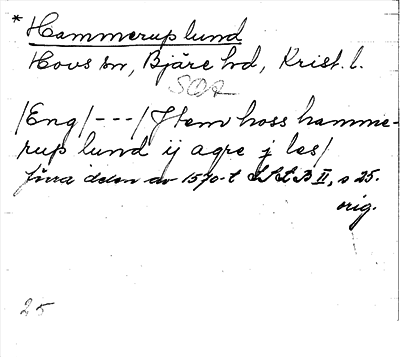 * Hammerup lund
Hovs sn, Bjäre hd, Krist. l.
SOR
/Eng/---/Item hoss hamme-
rup lund ij agre j las/
förra delen av 1570-t LSLB II, s 25.
orig.
25